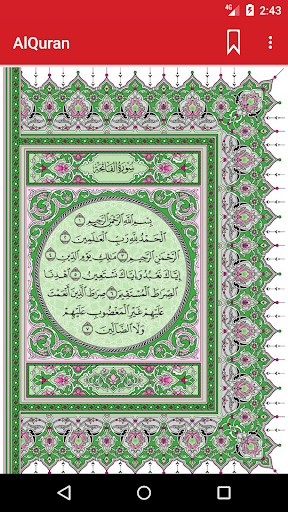 4G 2:43
AlQuran
سورة الفاتحة
بسم الله الرحمن الرحيم ١
الحمد لله رب العلمين ٢
الرحمن الرحيم ٣ ملك يوم الدين ٤
إياك نعبد وإياك نستعين ٥ اهدنا
الصرط المستقيم ٦ صرط الذين أنعمت
عليهم غير المغضوب عليهم
ولا الضالين ٧